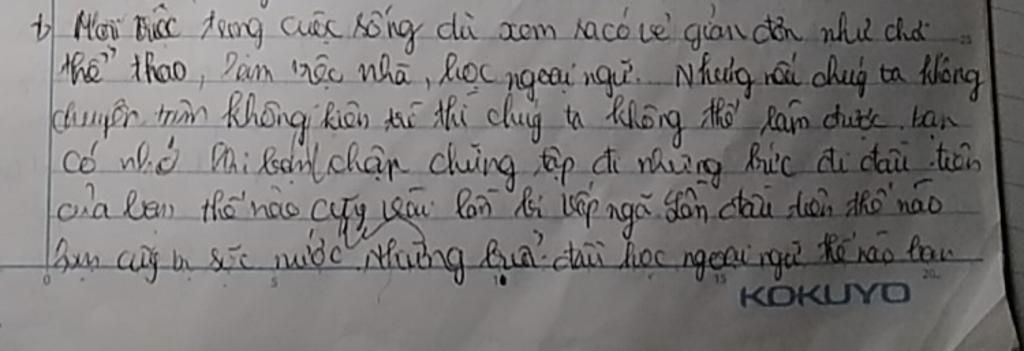 b) Mọi việc trong cuộc sống dù xem ra có vẻ giản đơn như chơi
thể thao, làm việc nhà, học ngoại ngữ. Nhưng nếu chúng ta không
chuyên tâm không kiên trì thì chúng ta không thể làm được. bạn
có nhớ khi chập chững tập đi những bước đi đầu tiên
của bạn thế nào cũng vài lần bị vấp ngã lần đầu tiên thế nào
bạn cũng bị sặc nước. Những buổi đầu học ngoại ngữ thế nào bạn
0 5 10 15 20
KOKUYO